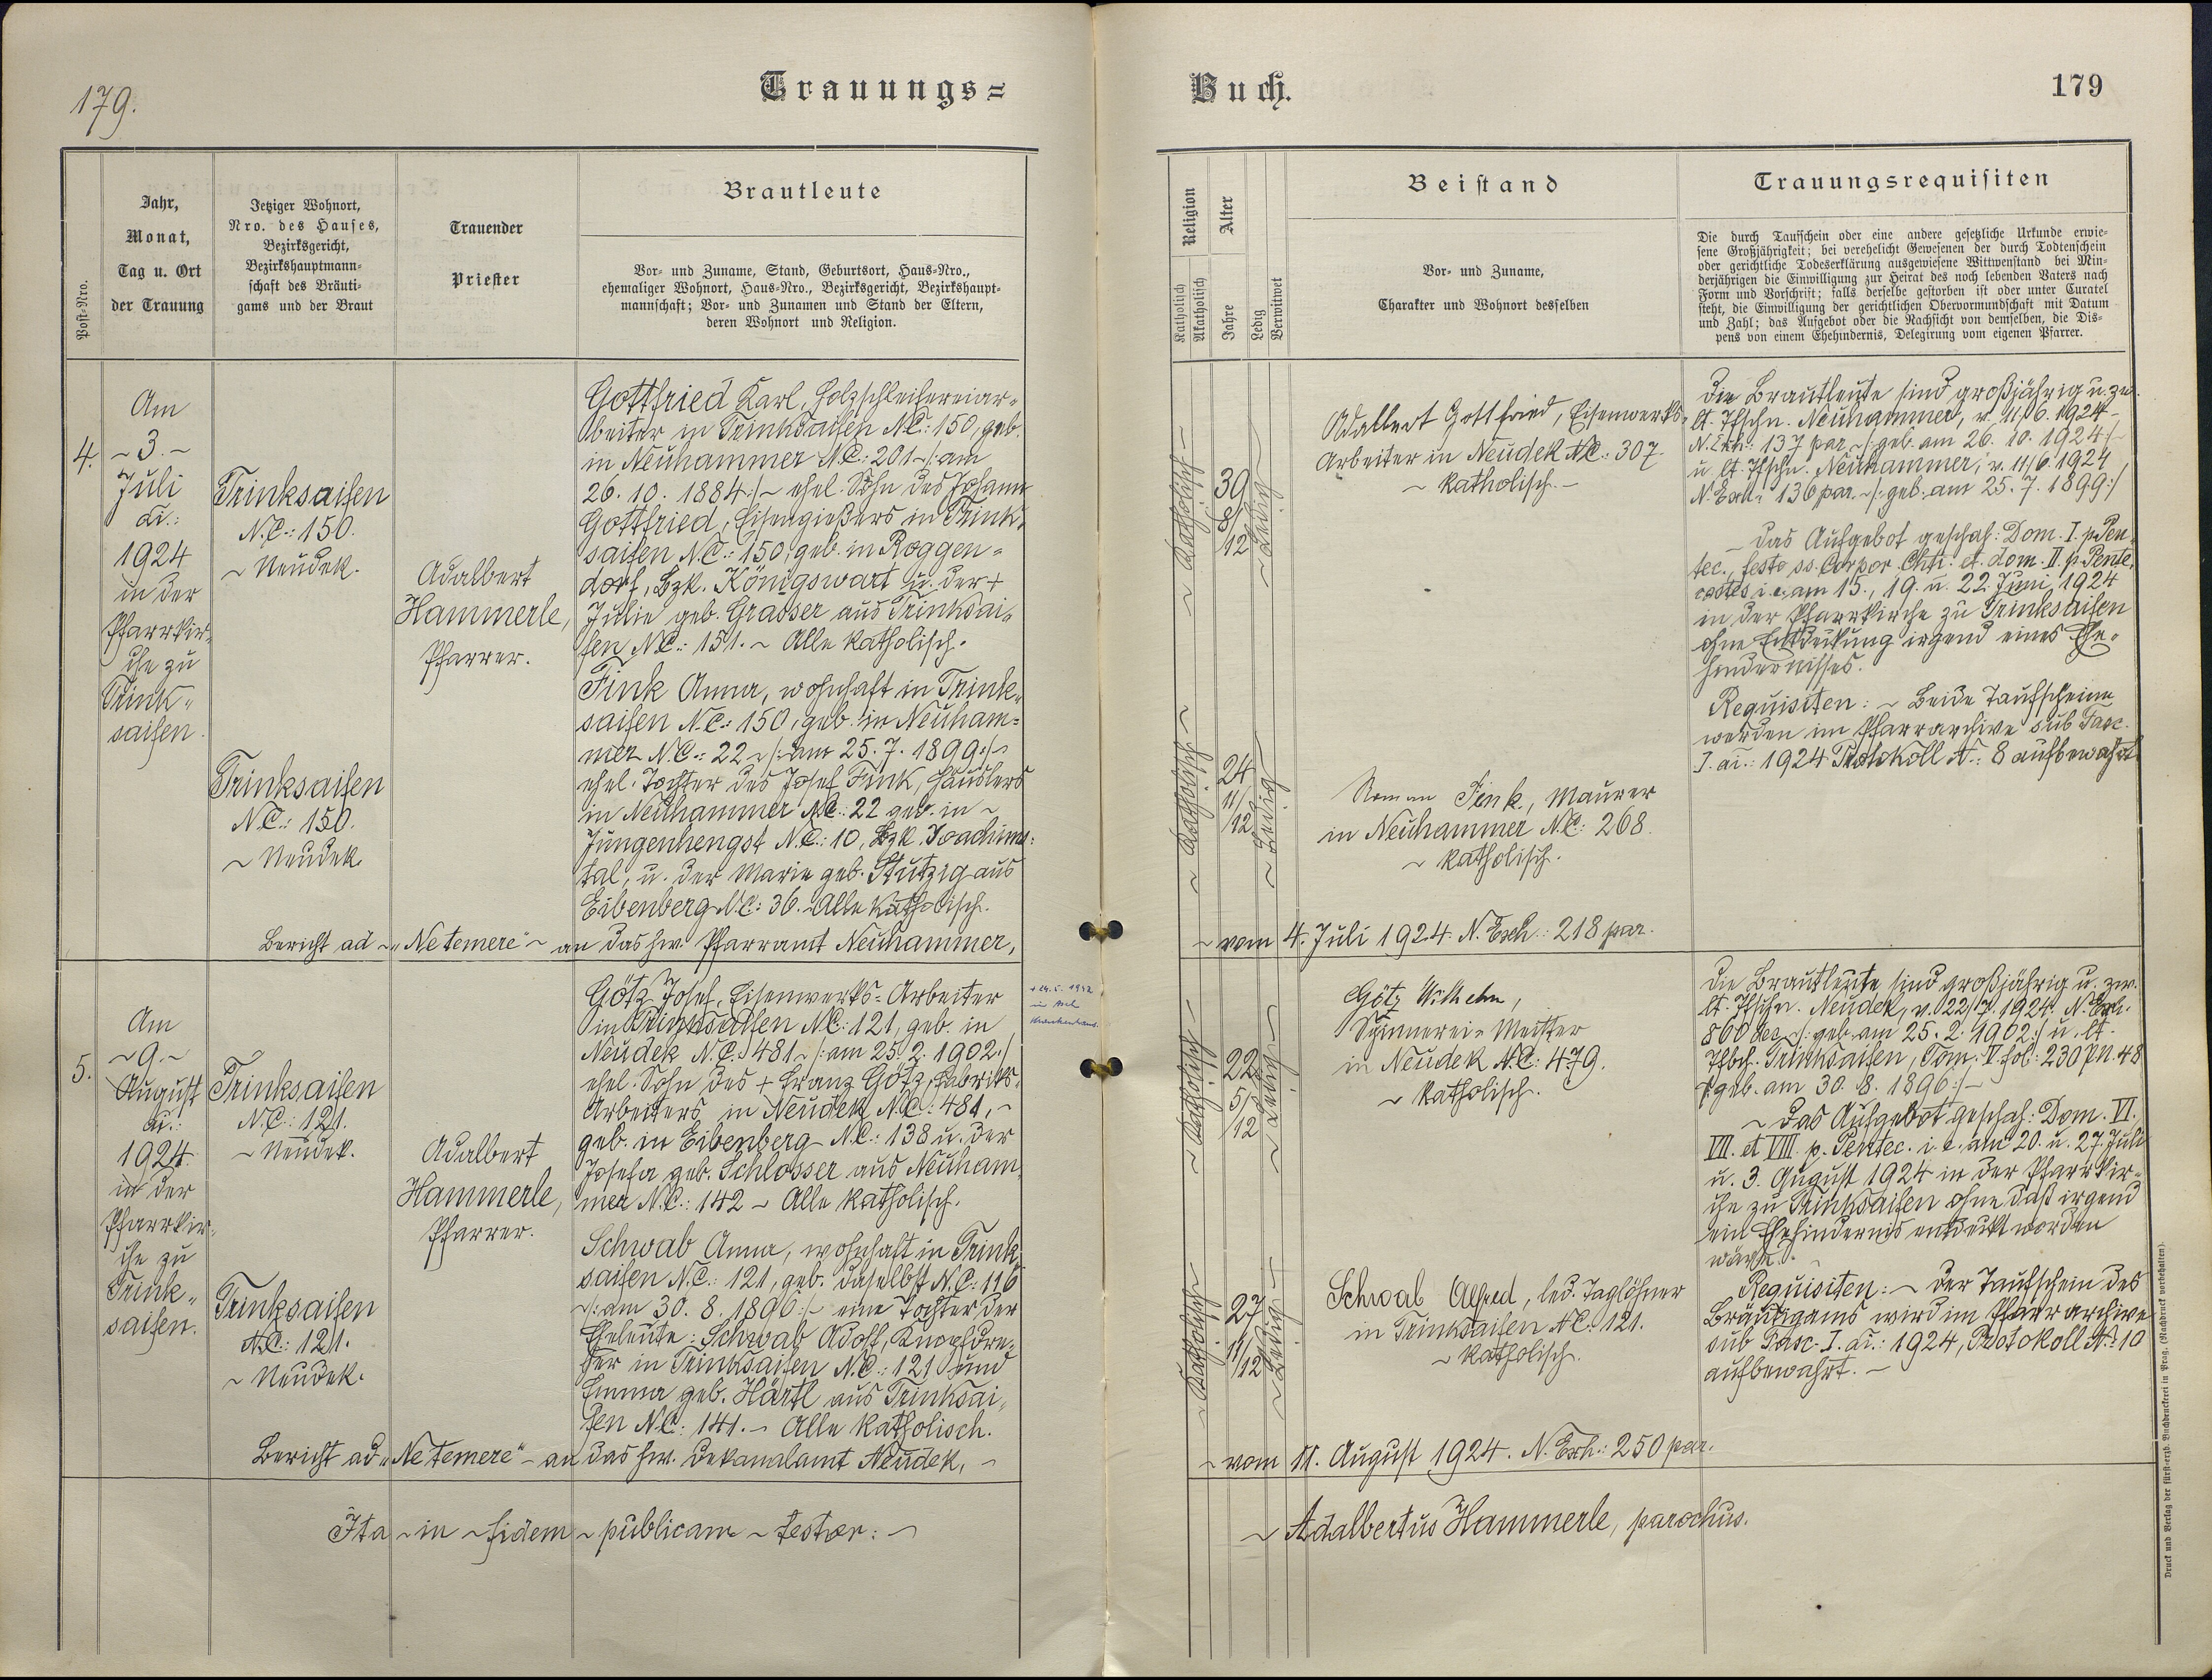 179.
Trauungs=
Post-Nro.
Jahr,
Monat,
Tag u. Ort
der Trauung
Jetziger Wohnort,
Nro. des Hauses,
Bezirksgericht,
Bezirkshauptmann-
schaft des Bräuti-
gams und der Braut
Trauender
Priester
Brautleute
Vor- und Zuname, Stand, Geburtsort, Haus-Nro.,
ehemaliger Wohnort, Haus-Nro., Bezirksgericht, Bezirkshaupt-
mannschaft; Vor- und Zunamen und Stand der Eltern,
deren Wohnort und Religion.
4.
Am
~ 3. ~
Juli
ai.:
1924
in der
Pfarrkir-
che zu
Trink-
saifen.
Trinksaifen
N.C.: 150.
~ Neudek.
Trinksaifen
N.C.: 150.
~ Neudek
Adalbert
Hammerle,
Pfarrer.
Gottfried Karl, Holzschleifereiar-
beiter in Trinksaifen N.C.: 150, geb.
in Neuhammer N.C.: 201 ~/: am
26. 10. 1884 :/~ ehel. Sohn des Johann
Gottfried, Eisengießers in Trink-
saifen N.C.: 150, geb. in Roggen-
dorf, Bzk. Königswart u. der +
Julie geb. Grasser aus Trinksai-
fen N.C.: 151. ~ Alle katholisch.
Fink Anna, wohnhaft in Trink-
saifen N.C.: 150, geb. in Neuham-
mer N.C.: 22 ~/: am 25. 7. 1899 :/~
ehel. Tochter des Josef Fink, Häuslers
in Neuhammer N.C.: 22 geb. in ~
Jungenhengst N.C.: 10, Bzk. Joachims-
tal, u. der Marie geb. Stutzig aus
Eibenberg N.C.: 36. ~ Alle katholisch.
Bericht ad ~ „Ne temere" ~ an das hw. Pfarramt Neuhammer,
5.
Am
~ 9. ~
August
ai.:
1924
in der
Pfarrkir-
che zu
Trink-
saifen.
Trinksaifen
N.C.: 121.
~ Neudek.
Trinksaifen
N.C.: 121.
~ Neudek.
Adalbert
Hammerle,
Pfarrer.
Götz Josef, Eisenwerks-Arbeiter
in Trinksaifen N.C.: 121, geb. in
Neudek N.C.: 481 ~/: am 25. 2. 1902 :/
ehel. Sohn des + Franz Götz, Fabriks-
Arbeiters in Neudek N.C.: 481, ~
geb. in Eibenberg N.C.: 138 u. der
Josefa geb. Schlosser aus Neuham-
mer N.C.: 142 ~ Alle katholisch.
Schwab Anna, wohnhaft in Trink-
saifen N.C.: 121, geb. daselbst N.C.: 116
~/: am 30. 8. 1896 :/~ eine Tochter der
Eheleute: Schwab Adolf, Knopfdre-
her in Trinksaifen N.C.: 121 und
Emma geb. Härtl aus Trinksai-
fen N.C.: 141. ~ Alle katholisch.
Bericht ad „Ne temere" ~ an das hw. Dekanalamt Neudek, ~
Ita ~ in ~ fidem ~ publicam ~ testor: ~
Buch.
179
Religion
Katholisch
Akatholisch
Alter
Jahre
Ledig
Verwitwet
Beistand
Vor- und Zuname,
Charakter und Wohnort desselben
Trauungsrequisiten
Die durch Taufschein oder eine andere gesetzliche Urkunde erwie-
sene Großjährigkeit; bei verehelicht Gewesenen der durch Todtenschein
oder gerichtliche Todeserklärung ausgewiesene Wittwenstand bei Min-
derjährigen die Einwilligung zur Heirat des noch lebenden Vaters nach
Form und Vorschrift; falls derselbe gestorben ist oder unter Curatel
steht, die Einwilligung der gerichtlichen Obervormundschaft mit Datum
und Zahl; das Aufgebot oder die Nachsicht von demselben, die Dis-
pens von einem Ehehindernis, Delegirung vom eigenen Pfarrer.
~ Katholisch ~
39
8/12
~ Ledig
Adalbert Gottfried, Eisenwerks-
Arbeiter in Neudek N.C.: 307.
~ katholisch. ~
~ Katholisch ~
24
11/12
~ Ledig
Roman Fink, Maurer
in Neuhammer N.C.: 268.
~ katholisch.
Die Brautleute sind großjährig u. zw.
lt. Tfschn. Neuhammer, v. 11/6. 1924 ~
N. Exh.: 137 par ~/: geb. am 26. 10. 1924 :/~
u. lt. Tfschn. Neuhammer, v. 11/6. 1924
N. Exh.: 136 par. ~/: geb. am 25. 7. 1899 :/
~ Das Aufgebot geschah: Dom. I. p. Pen-
tec., festo ss. Corpor. Chti. et dom. II. p. Pente-
costes i. e. am 15., 19. u. 22. Juni 1924
in der Pfarrkirche zu Trinksaifen
ohne Entdeckung irgend eines Ehe-
hindernisses.
Requisiten: ~ Beide Taufscheine
werden im Pfarrarchive sub Fasc.
I. ai.: 1924 Protokoll N.: 8 aufbewahrt.
~ vom 4. Juli 1924. N. Exh.: 218 par.
in
Krankenhaus.
~ Katholisch ~
22
5/12
~ Ledig ~
Götz Wilhelm,
Spinnerei-Meister
in Neudek N.C.: 479.
~ katholisch.
~ Katholisch ~
27
11/12
~ Ledig ~
Schwab Alfred, led. Taglöhner
in Trinksaifen N.C.: 121.
~ katholisch.
Die Brautleute sind großjährig u. zw.
lt. Tfschn. Neudek, v. 22/7. 1924. N. Exh.
860 dec. ~/: geb. am 25. 2. 1902 :/ u. lt.
Tfbch. Trinksaifen, Tom. V. fol: 230 pn. 48
/: geb. am 30. 8. 1896 :/~
~ Das Aufgebot geschah: Dom. VI.
VII. et VIII. p. Pentec. i. e. am 20. u. 27. Juli
u. 3. August 1924 in der Pfarrkir-
che zu Trinksaifen ohne daß irgend
ein Ehehindernis entdeckt worden
wäre.
Requisiten: ~ Der Taufschein des
Bräutigams wird im Pfarrarchive
sub Fasc. I. ai.: 1924, Protokoll N: 10
aufbewahrt. ~
~ vom 11. August 1924. N. Exh.: 250 par.
~ Adalbertus Hammerle, parochus.
Druck und Verlag der fürst-erzb. Buchdruckerei in Prag. (Nachdruck vorbehalten).